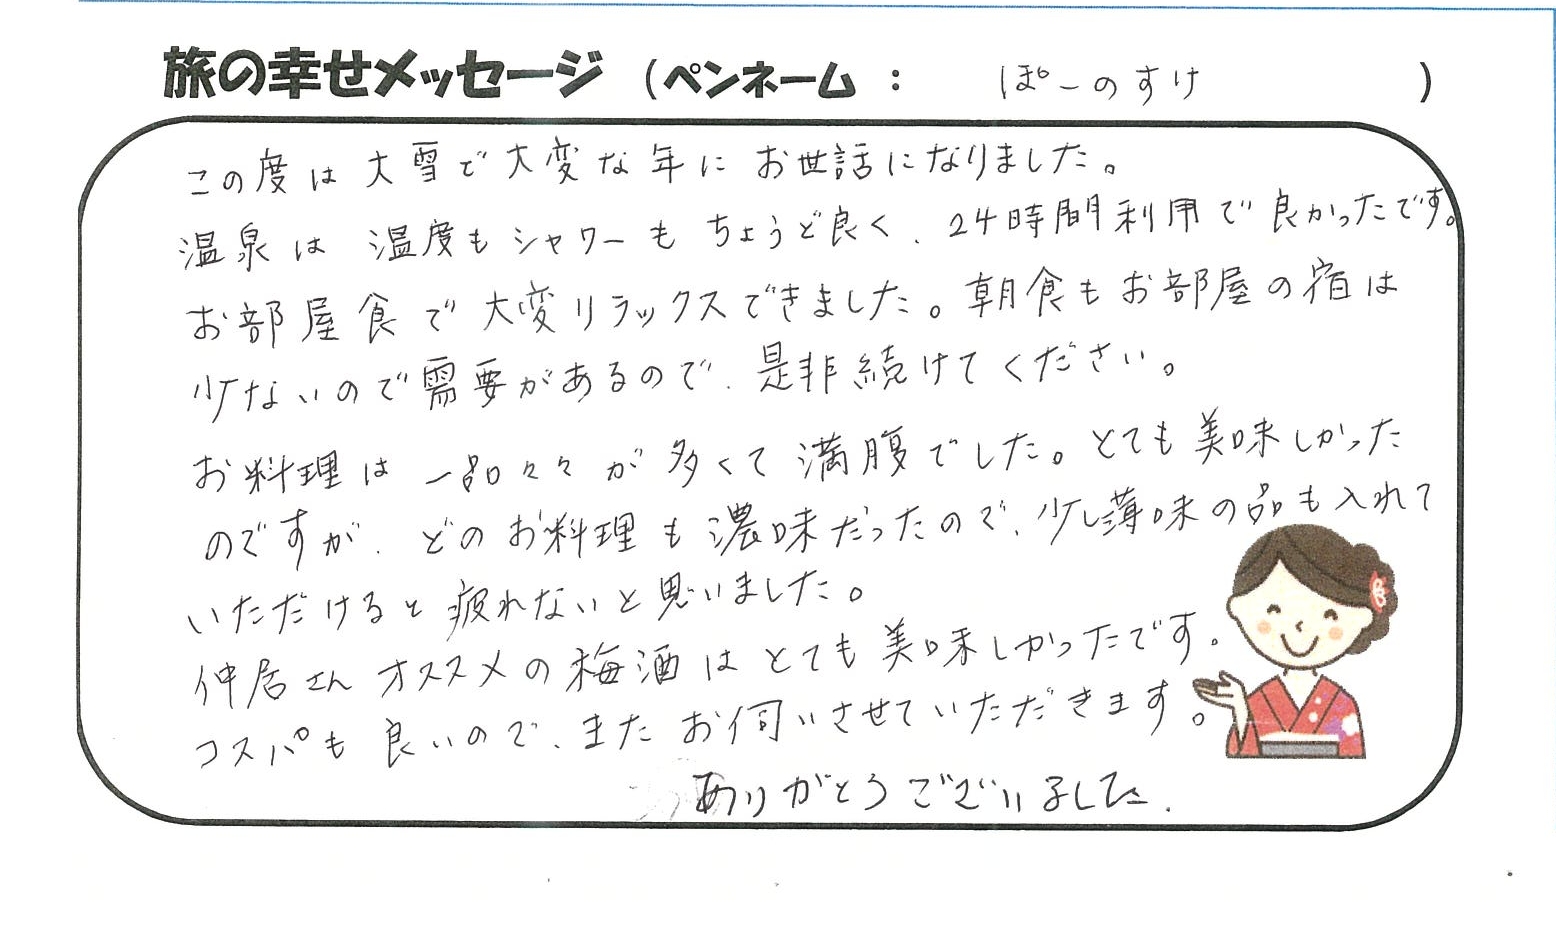 旅の幸せメッセージ (ペンネーム : ぽーのすけ )
この度は大雪で大変な年にお世話になりました。
温泉は温度もシャワーもちょうど良く、24時間利用で良かったです。
お部屋食で大変リラックスできました。朝食もお部屋の宿は
少ないので需要があるので、是非続けてください。
お料理は一品々々が多くて満腹でした。とても美味しかった
のですが、どのお料理も濃味だったので、少し薄味の品も入れて
いただけると疲れないと思いました。
仲居さんオススメの梅酒はとても美味しかったです。
コスパも良いので、またお伺いさせていただきます。
ありがとうございました。